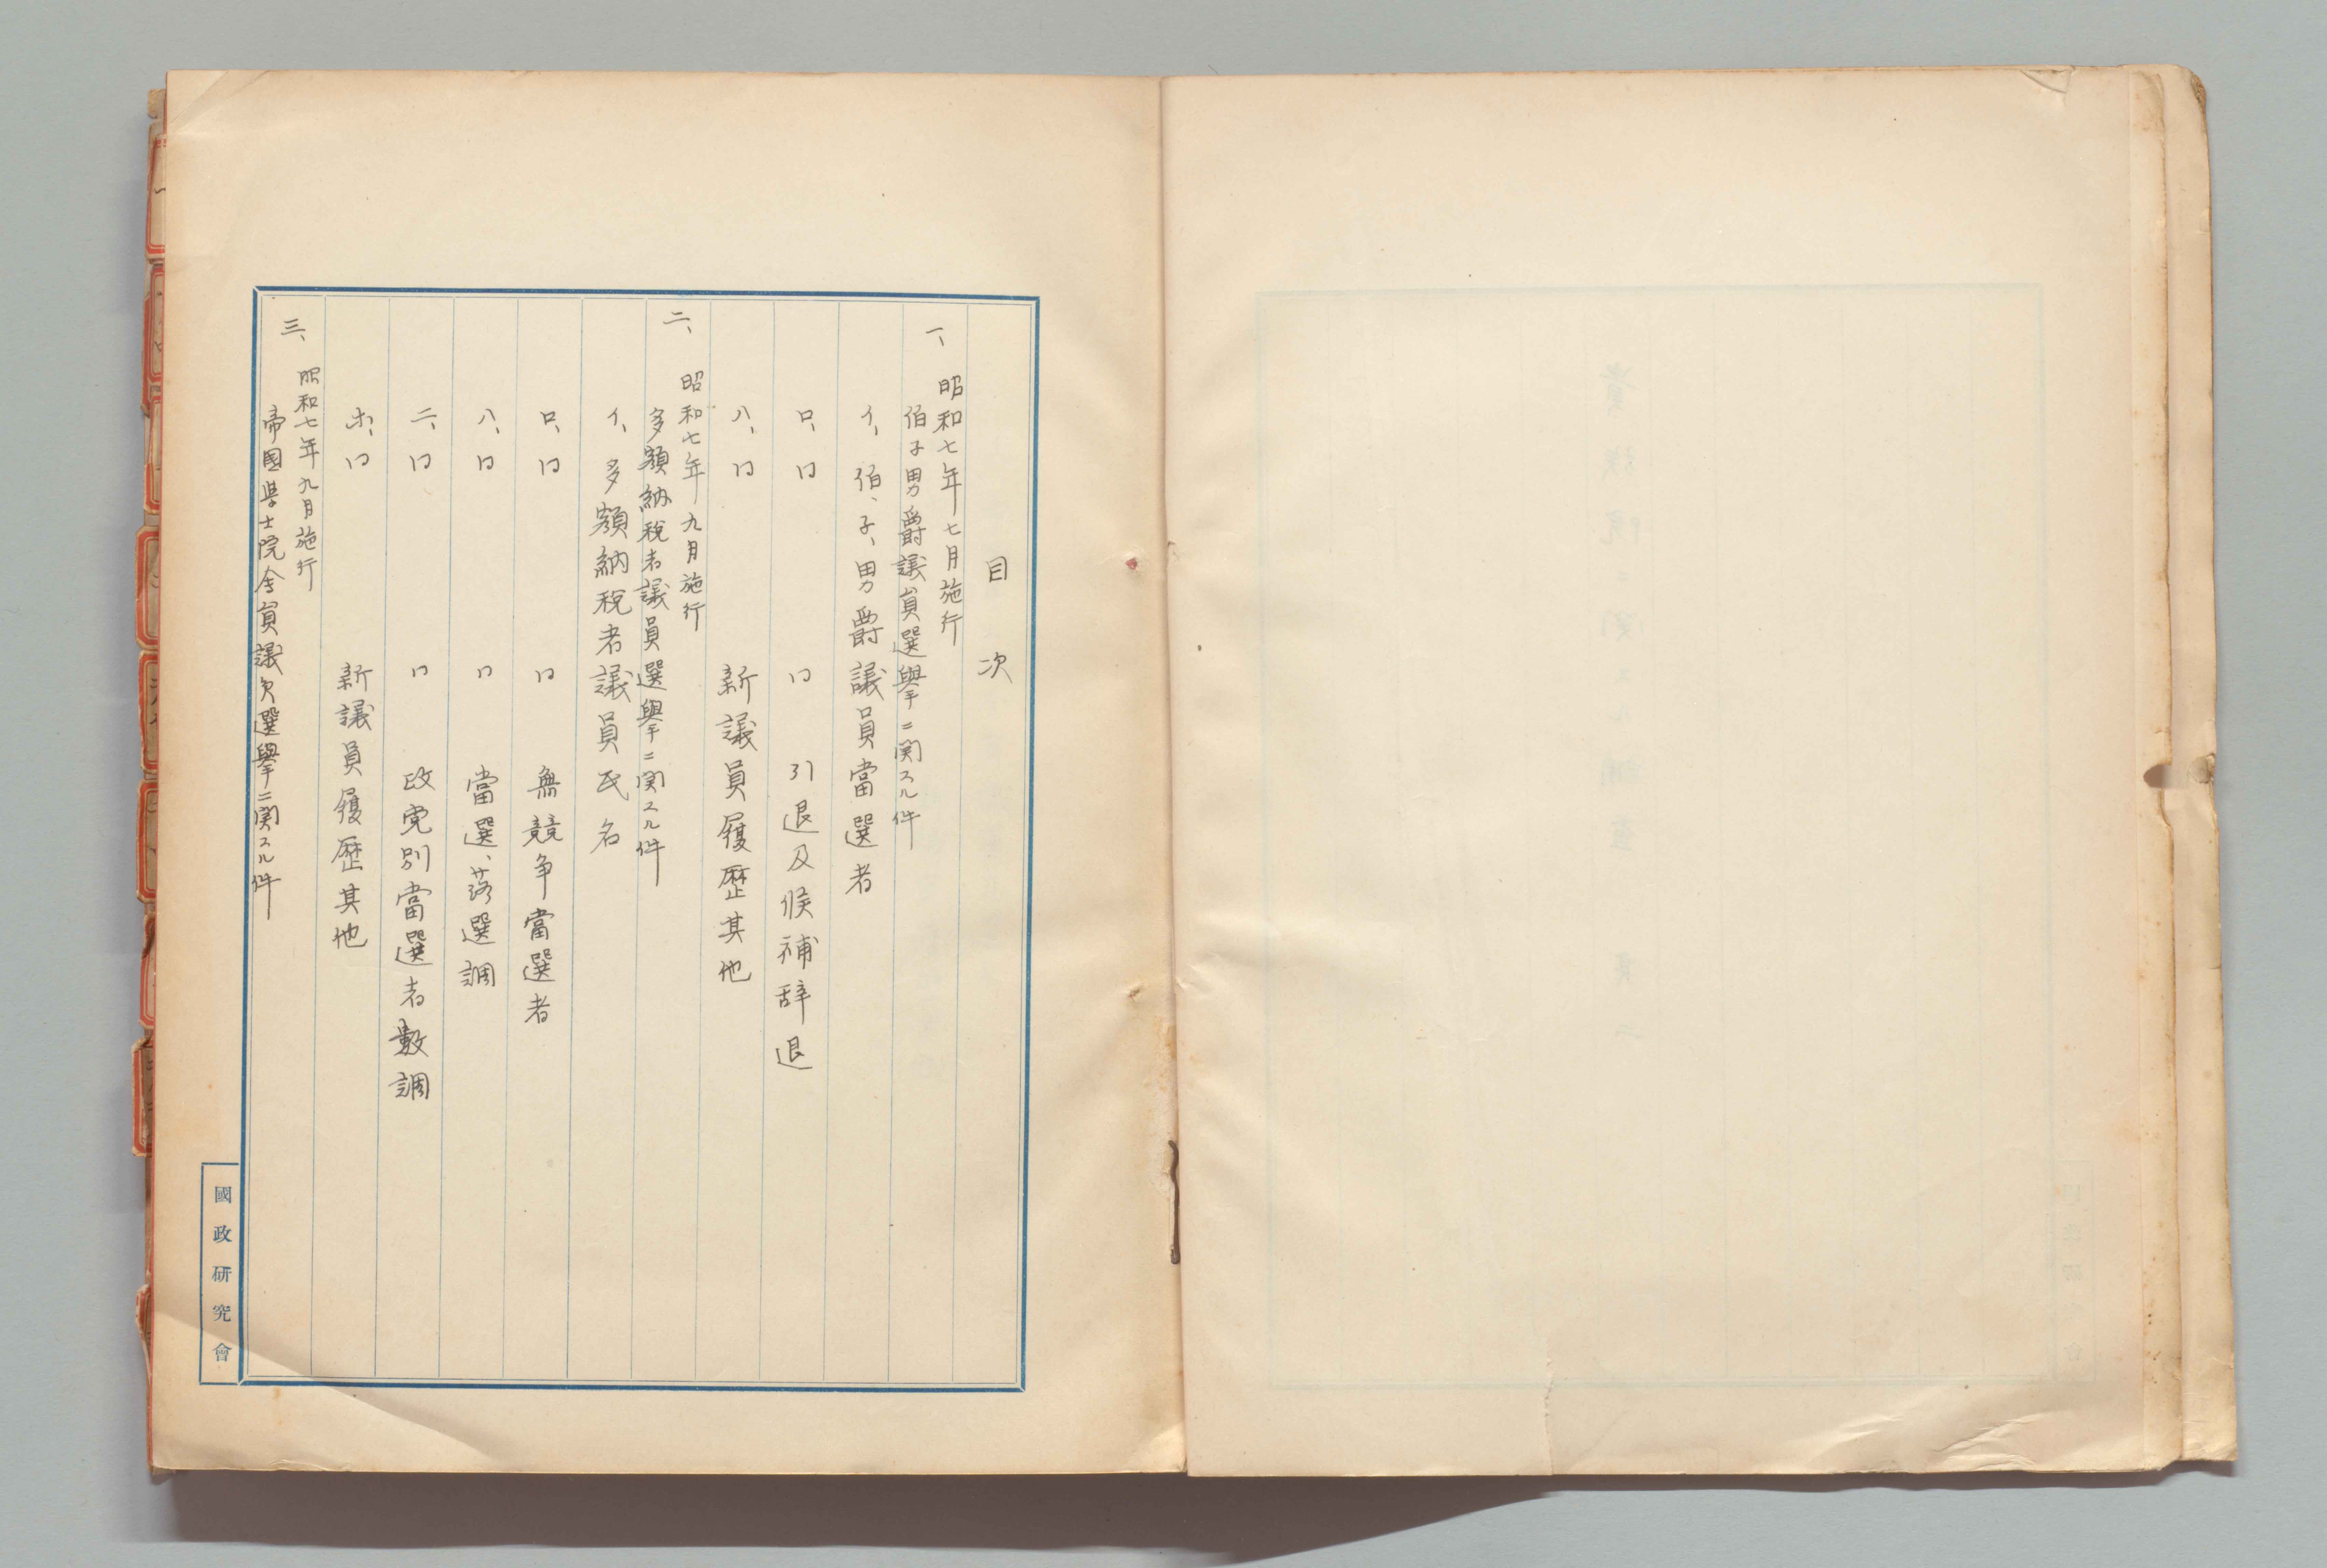 目次
一、昭和七年七月施行
伯子男爵議員選擧ニ関スル件
イ、伯、子、男爵議員當選者
ロ、〃 〃 引退及候補辞退
ハ、〃 新議員履歴其他
二、昭和七年九月施行
多額納税者議員選擧ニ関スル件
イ、多額納税者議員氏名
ロ、〃 〃 無競争當選者
ハ、〃 〃 當選、落選調
ニ、〃 〃 政党別當選者數調
ホ、〃 新議員履歴其他
三、昭和七年九月施行
帝國学士院会員議欠選擧ニ関スル件
國政研究會